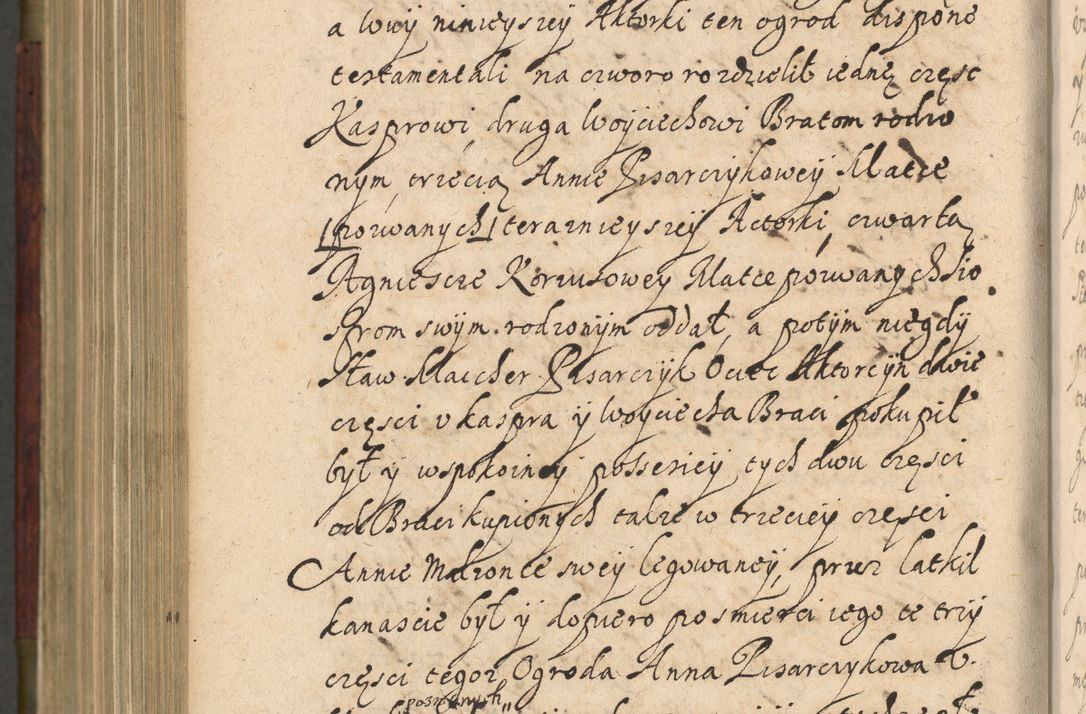 a wuÿ ninieyszey Aktorki ten ogrod dispone
testamentali na czworo rozdzielił iednę częsc
Kasprowi druga Woyciechowi Bratom rodzo
nym trzecią Annie Pisarczykowey Matce
pozwanych teraznieyszey Actorki, czwartą
Agniescie Korzusowey Matce pozwanych sio
strom swÿm rodzonÿm oddał, a potÿm niegdÿ
sław. Maccher Pisarczÿk Ociec Aktorcÿn dwie
częsci v Kaspra ÿ Woyciecha Braci pokupił
był ÿ wspokoineÿ possessiey tych dwu częsci
od Braci kupionych takze w trzeciey częsci
Annie Małzonce swey legowaney, przez lat kil
kanascie był ÿ dopiero po smierci iego te trzÿ
częsci tegoz Ogroda Anna Pisarczykowa V.
pozwanych